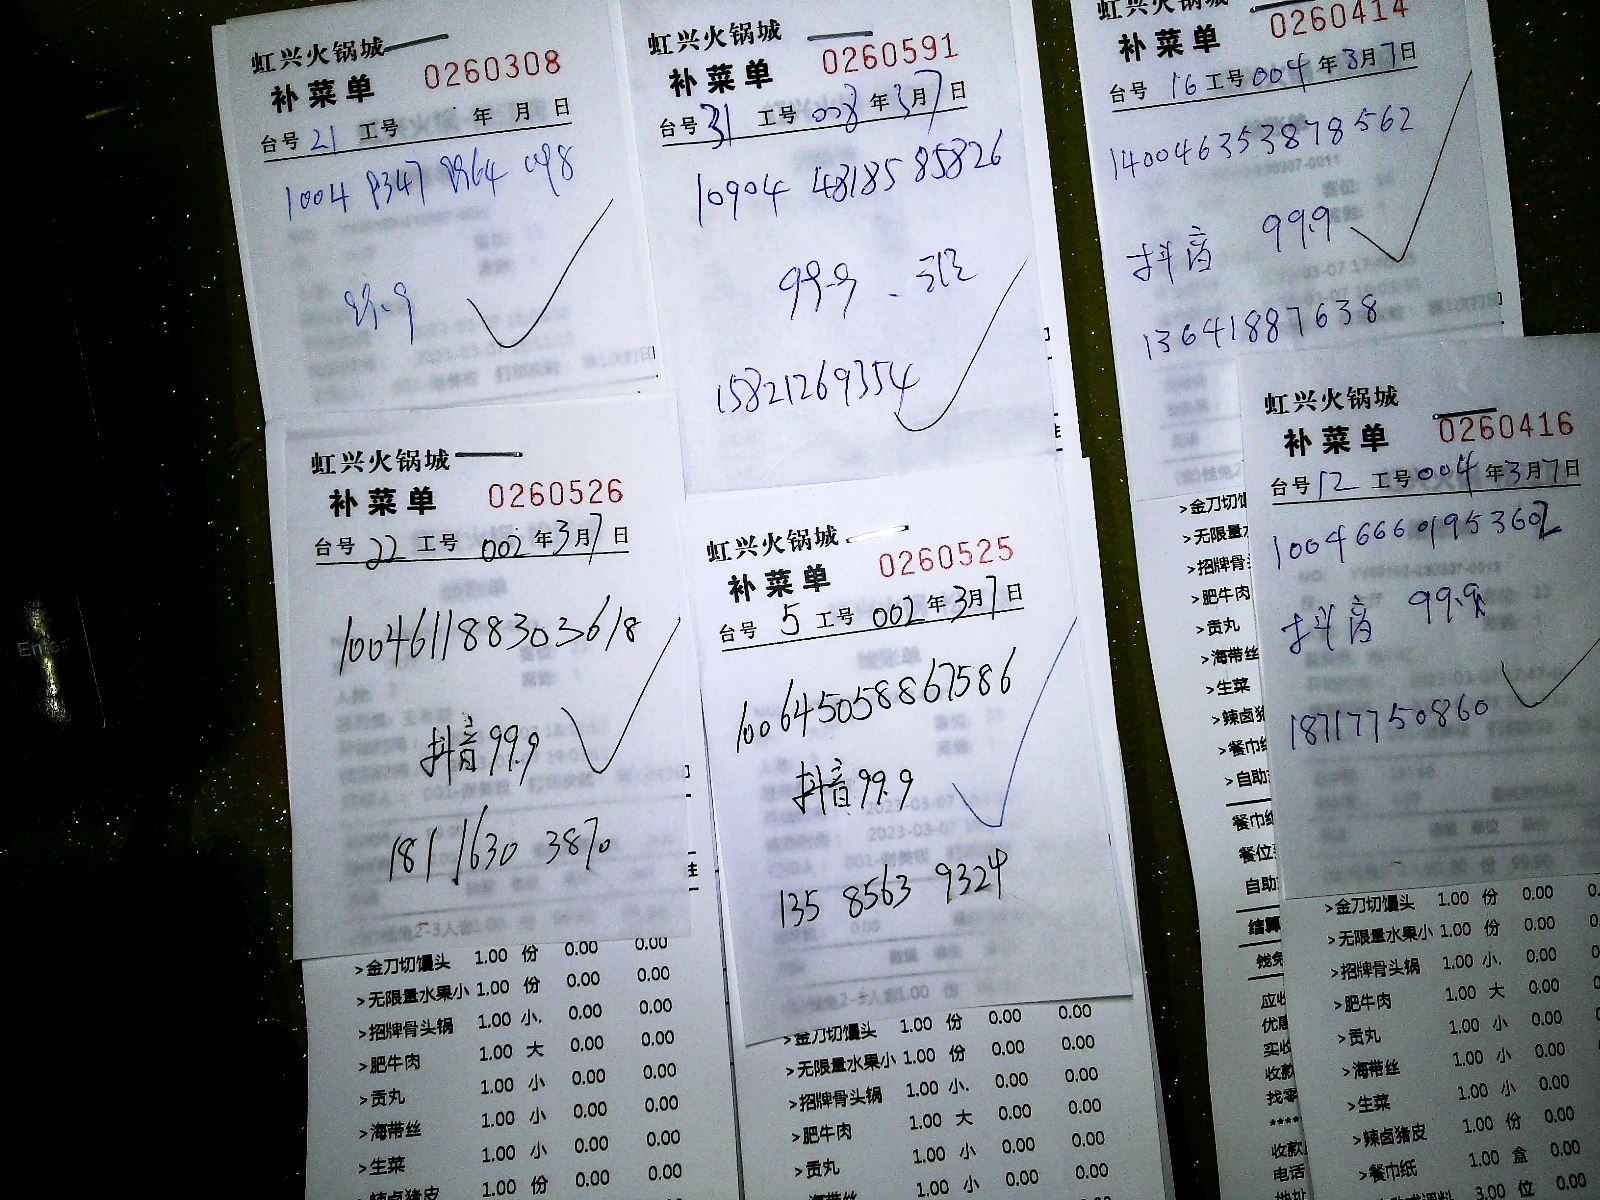 虹兴火锅城
补菜单 0260308
台号 21 工号 年 月 日
99.9
虹兴火锅城
补菜单 0260591
台号 31 工号 008 年 3月 7日
10904 48185 85826
99.9
15821269354
虹兴火锅城
补菜单 0260414
台号 16 工号 004 年 3月 7日
140046353878562
抖音 99.9
13641887638
虹兴火锅城
补菜单 0260526
台号 22 工号 002 年 3月 7日
100461188303618
抖音 99.9
181 1630 3870
虹兴火锅城
补菜单 0260525
台号 5 工号 002 年 3月 7日
100645058867586
抖音 99.9
135 8563 9324
虹兴火锅城
补菜单 0260416
台号 12 工号 004 年 3月 7日
100466601953602
抖音 99.9
18717750860
>金刀切馒头 1.00 份 0.00 0.00
>无限量水果小 1.00 份 0.00 0.00
>招牌骨头锅 1.00 小. 0.00 0.00
>肥牛肉 1.00 大 0.00 0.00
>贡丸 1.00 小 0.00 0.00
>海带丝 1.00 小 0.00 0.00
>生菜 1.00 小 0.00 0.00
>辣卤猪皮 1.00 份 0.00 0.00
>金刀切馒头 1.00 份 0.00 0.00
>无限量水果小 1.00 份 0.00 0.00
>招牌骨头锅 1.00 小. 0.00 0.00
>肥牛肉 1.00 大 0.00 0.00
>贡丸 1.00 小 0.00 0.00
>海带丝 1.00 小 0.00 0.00
>金刀切
>无限量
>招牌骨
>肥牛肉
>贡丸
>海带丝
>生菜
>辣卤
>餐巾
>自助
餐巾
餐位
自助
结算
应收
优惠
实收
收款
找零
****
收款
电话
地址
>金刀切馒头 1.00 份 0.00
>无限量水果小 1.00 份 0.00
>招牌骨头锅 1.00 小. 0.00
>肥牛肉 1.00 大 0.00
>贡丸 1.00 小 0.00
>海带丝 1.00 小 0.00
>生菜 1.00 小 0.00
>辣卤猪皮 1.00 份 0.00
>餐巾纸 1.00 盒 0.00
3.00 位 0.00